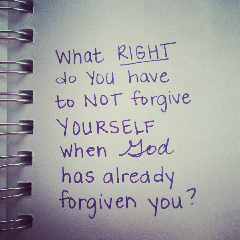 What RIGHT
do YOU have
to NOT forgive
YOURSELF
when God
has already
forgiven you?